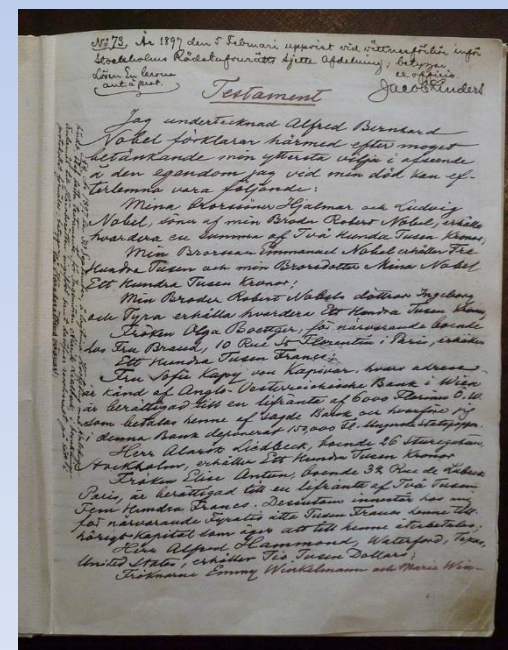 No 73, År 1897 den 5 Februari uppvist vid vittnesförhör inför
Stockholms Rådstufvurätts sjette Afdelning; betygar
Lösen En krona
ex officio
Jacob Lindert
Testament
Jag undertecknad Alfred Bernhard
Nobel förklarar härmed efter moget
betänkande min yttersta vilja i afseende
å den egendom jag vid min död kan ef-
terlemna vara följande:
Mina Brorsöner Hjalmar och Ludvig
Nobel, söner af min Broder Robert Nobel, erhålla
hvardera en summa af Två Hundra Tusen Kronor;
Min Brorson Emmanuel Nobel erhåller Tre
Hundra Tusen och min Brorsdotter Mina Nobel
Ett Hundra Tusen Kronor;
Min Broder Robert Nobels döttrar Ingeborg
och Tyra erhålla hvardera Ett Hundra Tusen Kronor;
Fröken Olga Boettger, för närvarande boende
hos Fru Brand, 10 Rue St Florentin i Paris, erhåller
Ett Hundra Tusen Francs;
Fru Sofie Kapy von Kapivar, hvars adress
är känd af Anglo-Oesterreichische Bank i Wien
är berättigad till en lifränta af 6000 Florins Ö.W.
som betalas henne af sagde Bank och hvarföre jag
i denna Bank deponerat 150,000 Fl. i Ungerska statspapper.
Herr Alarik Liedbeck, boende 26 Sturegatan,
Stockholm, erhåller Ett Hundra Tusen Kronor
Fröken Elise Antun, boende 32 Rue de Lubeck
Paris, är berättigad till en lifränta af Två Tusen
Fem Hundra Francs. Dessutom innestår hos mig
för närvarande Fyratio åtta Tusen Francs henne till-
hörigt kapital som är att till henne återbetalas;
Herr Alfred Hammond, Waterford, Texas,
United States, erhåller Tio Tusen Dollars;
Fröknarne Emmy Winkelmann och Marie Win-